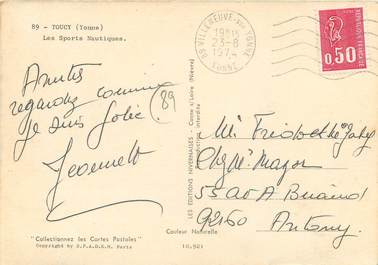 89 - TOUCY (Yonne)
Les Sports Nautiques.
Amitiés
regardez comme
je suis jolie.
(89)
89 VILLENEUVE-sur-YONNE
19H15
23-8
1974
YONNE
0,50
LES EDITIONS NIVERNAISES - Cosne s/Loire (Nièvre)
Reproduction interdite
55 Av A Briand
92160
Antony
"Collectionnez les Cartes Postales"
Copyright by
Paris
Couleur Naturelle
10.501